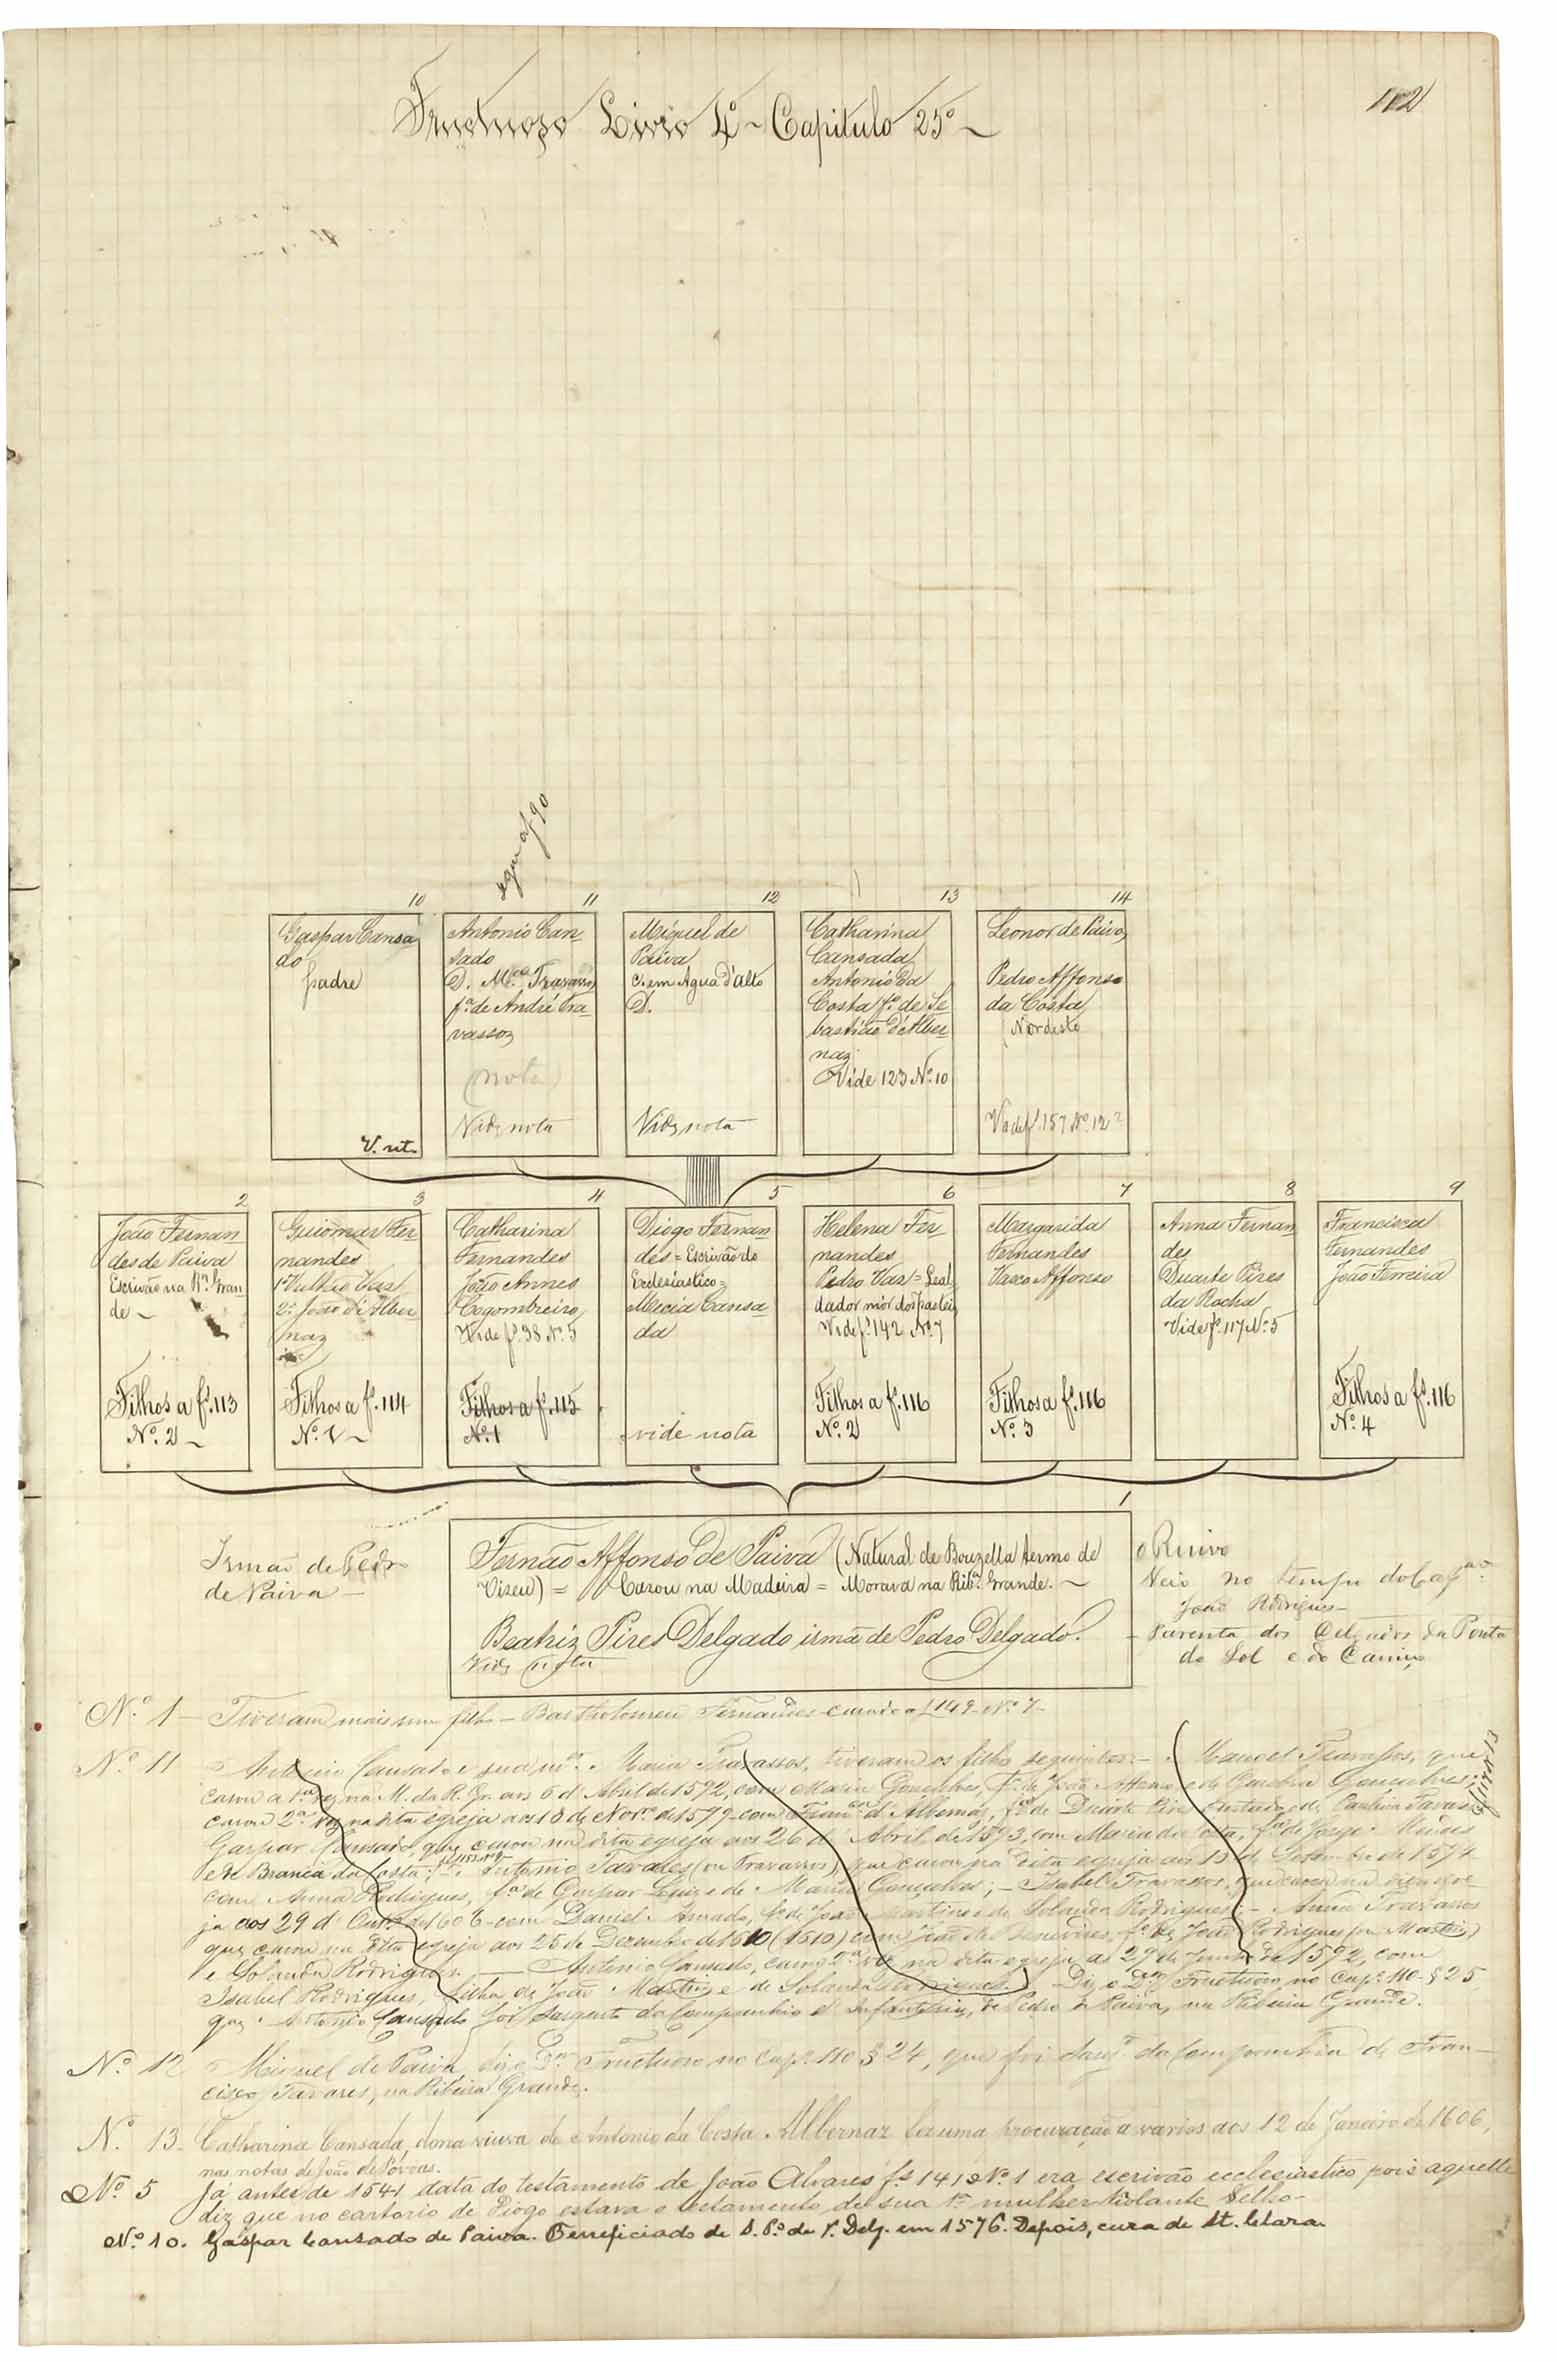 112
Fructuoso Livro 4º ~ Capitulo 25º ~
segue a f 90
10
Gaspar Cansa
do
padre
V. nt.
11
Antonio Can-
sado
D. M.ca Travassos
f.ª de André Tra-
vassos
(nota)
Vide nota
12
Miguel de
Paiva
c. em Agua d'alto
D.
Vide nota
13
Catharina
Cansada
Antonio da
Costa f.º de Se-
bastião d'Alber-
naz
Vide 123 Nº 10
14
Leonor de Paiva
Pedro Affonso
da Costa
(Nordeste
Vide f. 157 Nº 12?
2
João Fernan
des de Paiva
Escrivão na Rª. Gran
de ~
Filhos a fs. 113
Nº. 2 ~
3
Guiomar Fer-
nandes
1º Vaz
2º João d'Alber
naz
Filhos a fs. 114
Nº. 1 ~
4
Catharina
Fernandes
João Annes
Cogombreiro
Vide fs. 98 Nº. 5
Filhos a fs. 115
Nº 1
5
Diogo Fernan
des = Escrivão do
Ecclesiastico =
Mecia Cansa-
da
vide nota
6
Helena Fer-
nandes
Pedro Vaz = Leal
dador mór dos pasteis
Vide fs. 142 Nº 7
Filhos a fs. 116
Nº. 2
7
Margarida
Fernandes
Vasco Affonso
Filhos a fs. 116
Nº. 3
8
Anna Fernan
des
Duarte Pires
da Rocha
Vide fs. 117 Nº 5
9
Francisca
Fernandes
João Ferreira
Filhos a fs. 116
Nº. 4
Irmão de Pedro
de Paiva —
1
Fernão Affonso de Paiva (Natural de Bouzella termo de
Viseu) = Casou na Madeira = Morava na Rib.ª Grande. ~
Beatriz Pires Delgado irmã de Pedro Delgado.
Vide nota
o Ruivo
Veio no tempo do Cap.ªº
João Rodrigues —
- Parenta dos Delgados da Ponta
do Sol e do Caniço
Nº. 1 — Tiveram mais um filho — Bartholomeu Fernandes a f 149 Nº 7 -
Nº. 11 Antonio Cansado e sua m.er Maria Travassos, tiveram os filhos seguintes: — Manoel Travassos, que
casou a 1ª vez na M. da R. Gr. aos 6 d'Abril de 1592, com Maria Gonçalves, f.ª de João Affonso e de Gonçalves;
casou 2ª vez na dita egreja aos 18 de Nov.ro de 1599 com Fran.ca d'Albernaz, f.ª de Duarte Pires e de Tavares
Gaspar Cansado, que casou na dita egreja aos 26 d'Abril de 1593, com Maria da Costa, f.ª de Jorge Nunes
e de Branca da Costa; — Antonio Tavares (ou Travassos), que casou na dita egreja aos 13 de Setembro de 1594
com Anna Rodrigues, f.ª de Gaspar Luiz e de Maria Gonçalves; — Isabel Travassos, que casou na dita egre
ja aos 29 d'Out.ro de 1606 com Daniel Amado, f.º de João Martins e de Solanda Rodrigues; — Anna Travassos
que casou na dita egreja aos 25 de Dezembro de 1610 (1610) com f.º de João Rodrigues (ou Martins)
e Solanda Rodrigues. — Antonio Cansado, casou 2ª vez na dita egreja a 29 de Junho de 1592, com
Isabel Rodrigues, filha de João Martins e de Solanda Rodrigues. Diz o D.or Fructuoso no cap.º 110 § 25
que Antonio Cansado foi Sargento da Companhia d'Infanteria, de Pedro de Paiva, na Ribeira Grande.
Nº. 12 Miguel de Paiva, diz o D.r Fructuoso no cap.º 110 § 24, que foi Sarg.to da Companhia de Fran-
cisco Tavares, na Ribeira Grande.
Nº. 13 - Catharina Cansada, dona viuva de Antonio da Costa Albernaz faz uma procuração a varios aos 12 de Janeiro de 1606,
nas notas de João de Póvoas.
Nº. 5 Já antes de 1541 data do testamento de João Alvares fs 141 Nº 1 era escrivão ecclesiastico pois aquelle
diz que no cartorio de Diogo estava o testamento de sua 1ª mulher Violante Velho -
Nº. 10. Gaspar Cansado de Paiva. Beneficiado de S. P.º de P. Delg. em 1576. Depois, cura de St. Clara.